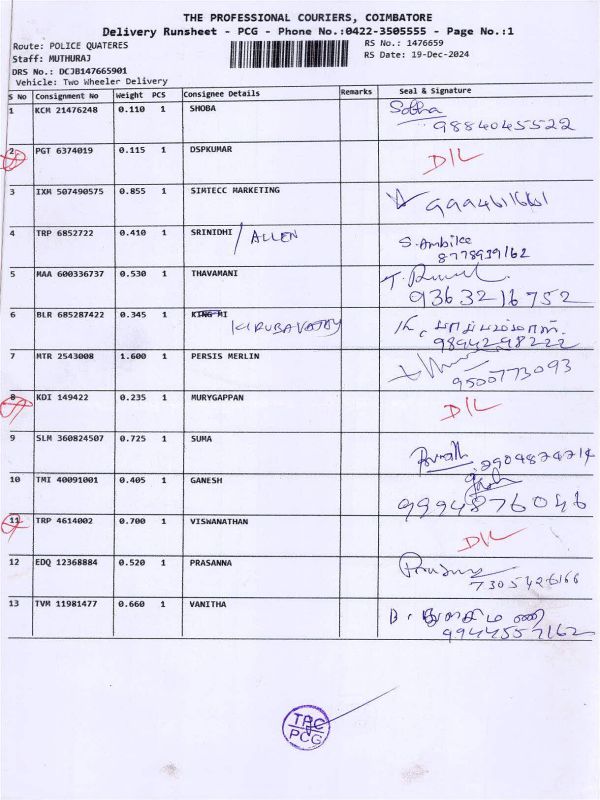 THE PROFESSIONAL COURIERS, COIMBATORE
Delivery Runsheet - PCG - Phone No.:0422-3505555 - Page No.:1
Route: POLICE QUATERES
RS No.: 1476659
Staff: MUTHURAJ
RS Date: 19-Dec-2024
DRS No.: DCJB147665901
Vehicle: Two Wheeler Delivery
S No Consignment No Weight PCS Consignee Details Remarks Seal & Signature
1 KCM 21476248 0.110 1 SHOBA Sobha
9884045522
2 PGT 6374019 0.115 1 DSPKUMAR D/L
3 IXM 507490575 0.855 1 SIMTECC MARKETING
4 TRP 6852722 0.410 1 SRINIDHI / ALLEN S. Ambika
8778939162
5 MAA 600336737 0.530 1 THAVAMANI
9363216752
6 BLR 685287422 0.345 1 KING MI
9894298222
7 MTR 2543008 1.600 1 PERSIS MERLIN
9500773093
8 KDI 149422 0.235 1 MURYGAPPAN D/L
9 SLM 360824507 0.725 1 SUMA
10 TMI 40091001 0.405 1 GANESH
9994876046
11 TRP 4614002 0.700 1 VISWANATHAN D/L
12 EDQ 12368884 0.520 1 PRASANNA
7305426166
13 TVM 11981477 0.660 1 VANITHA
9944557162
TPC
PCG